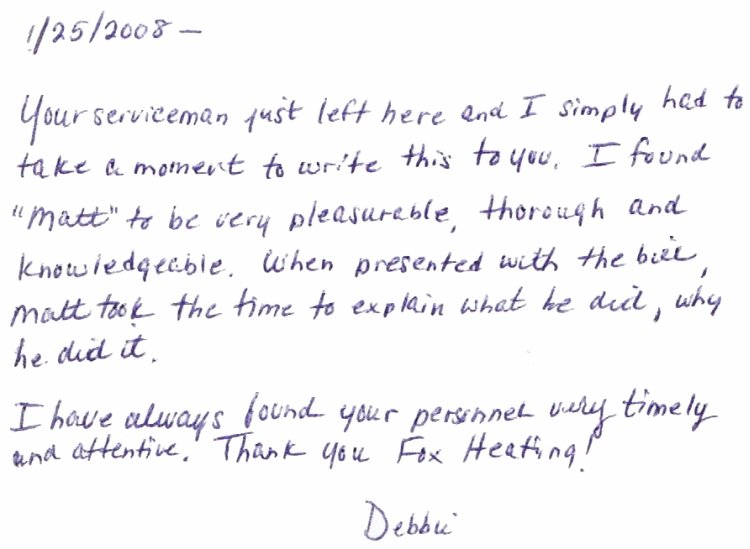 1/25/2008 —
Your serviceman just left here and I simply had to
take a moment to write this to you. I found
"Matt" to be very pleasurable, thorough and
knowledgeable. When presented with the bill,
Matt took the time to explain what he did, why
he did it.
I have always found your personnel very timely
and attentive. Thank you Fox Heating!
Debbie